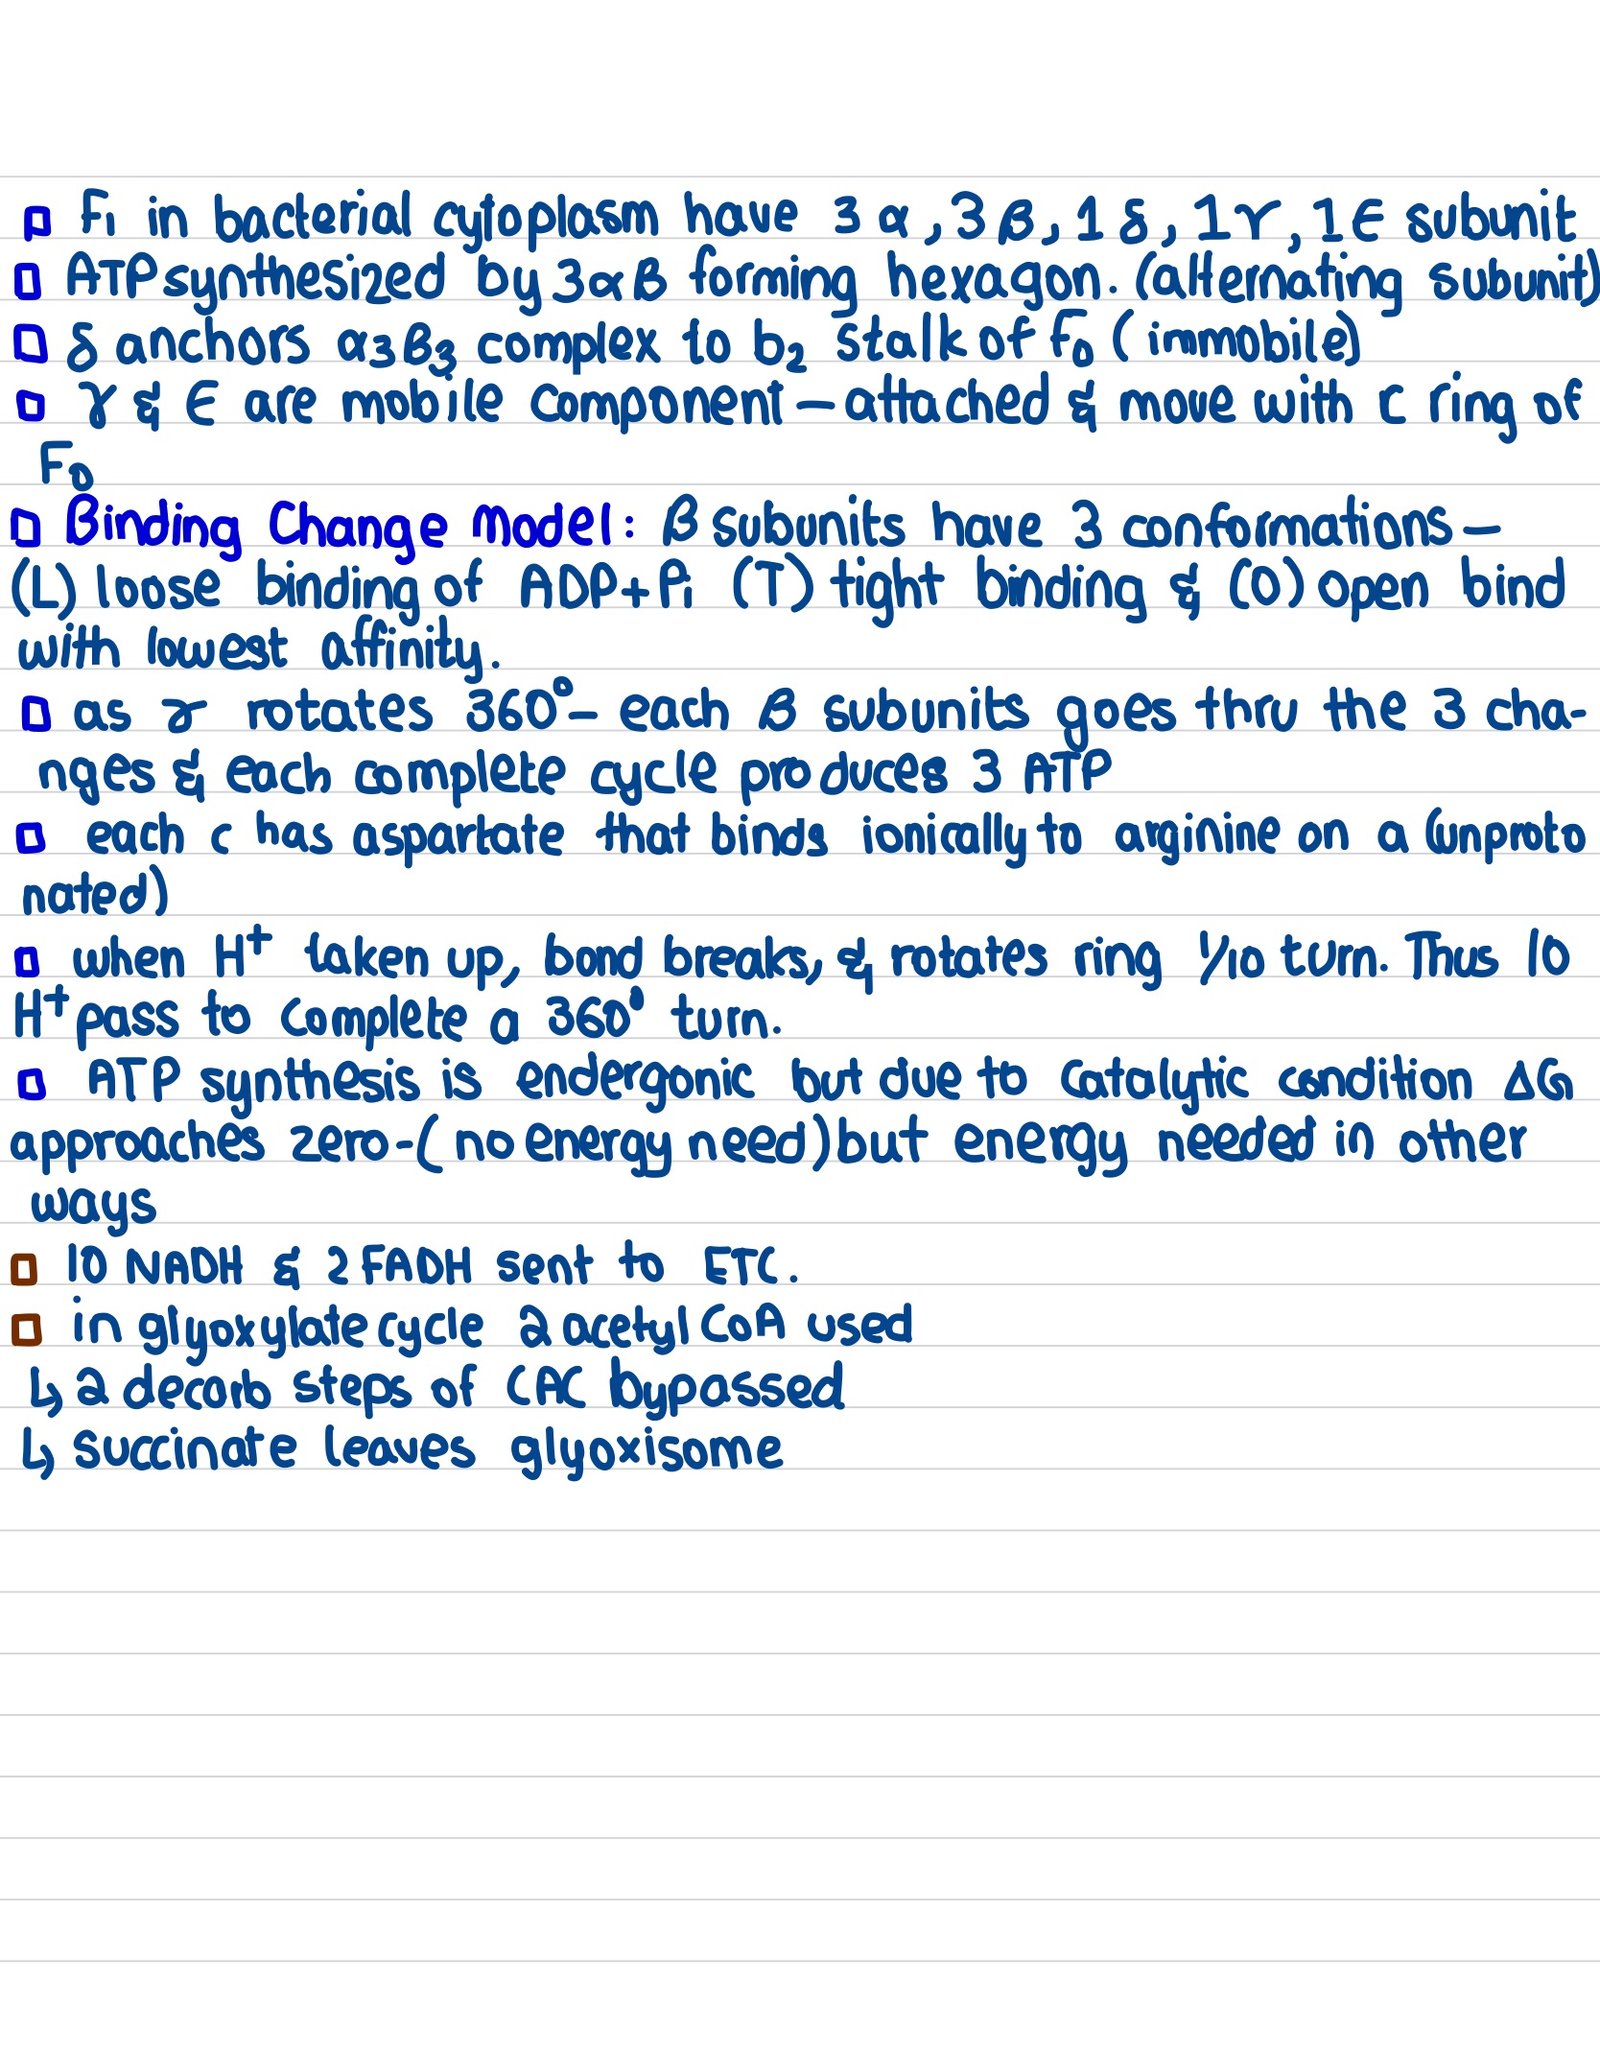 ▫ F₁ in bacterial cytoplasm have 3 α, 3 β, 1 δ, 1 γ, 1 ϵ subunit
▫ ATP synthesized by 3αβ forming hexagon. (alternating subunit)
▫ δ anchors α₃β₃ complex to b₂ stalk of F₀ (immobile)
▫ γ & ϵ are mobile component – attached & move with c ring of
F₀
▫ Binding Change Model: β subunits have 3 conformations –
(L) loose binding of ADP+Pi (T) tight binding & (O) open bind
with lowest affinity.
▫ as γ rotates 360° – each β subunits goes thru the 3 cha-
nges & each complete cycle produces 3 ATP
▫ each c has aspartate that binds ionically to arginine on a (unproto
nated)
▫ when H⁺ taken up, bond breaks, & rotates ring 1/10 turn. Thus 10
H⁺ pass to complete a 360° turn.
▫ ATP synthesis is endergonic but due to catalytic condition ΔG
approaches zero - (no energy need) but energy needed in other
ways
▫ 10 NADH & 2 FADH sent to ETC.
▫ in glyoxylate cycle 2 acetyl CoA used
↳ 2 decarb steps of CAC bypassed
↳ succinate leaves glyoxisome